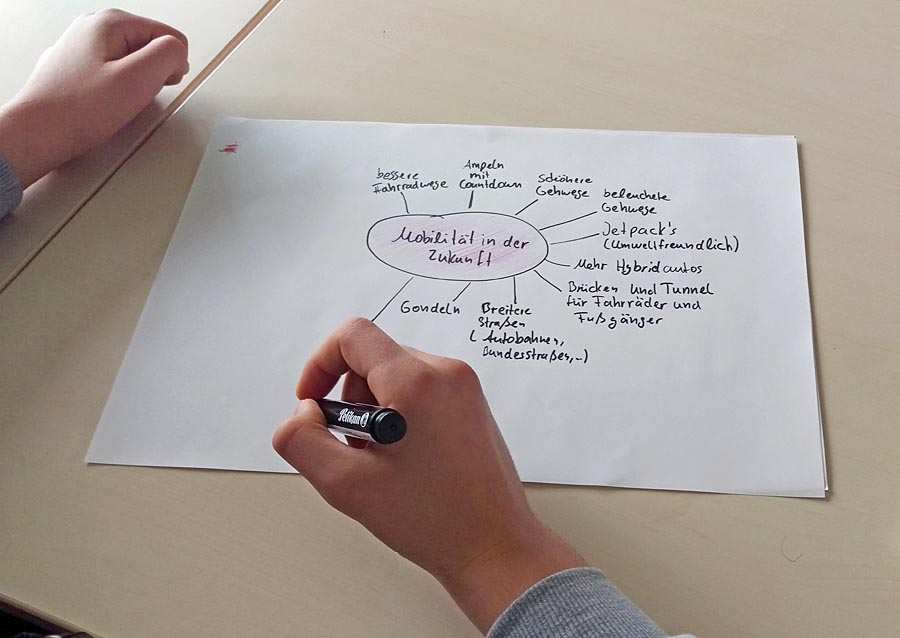 bessere
Fahrradwege
Ampeln
mit
Countdown
Schönere
Gehwege
beleuchete
Gehwege
Jetpack's
(Umweltfreundlich)
Mehr Hybridautos
Brücken und Tunnel
für Fahrräder und
Fußgänger
Breitere
Straßen
(Autobahnen,
Bundesstraßen,...)
Gondeln
Mobilität in der
Zukunft
Pelikan